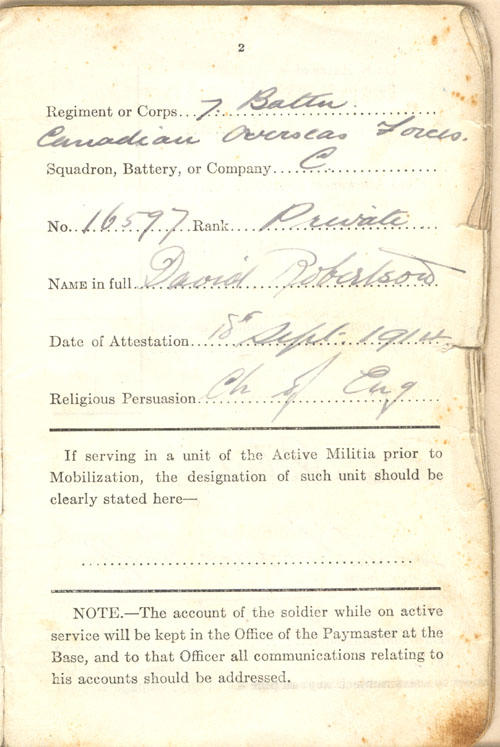 2
Regiment or Corps... 7 Battn.
Canadian Overseas Forces.
Squadron, Battery, or Company... C
No. 16597 Rank Private
NAME in full... David Robertson
Date of Attestation... 18th Sept. 1914
Religious Persuasion... Ch of Eng
If serving in a unit of the Active Militia prior to
Mobilization, the designation of such unit should be
clearly stated here—
NOTE.—The account of the soldier while on active
service will be kept in the Office of the Paymaster at the
Base, and to that Officer all communications relating to
his accounts should be addressed.